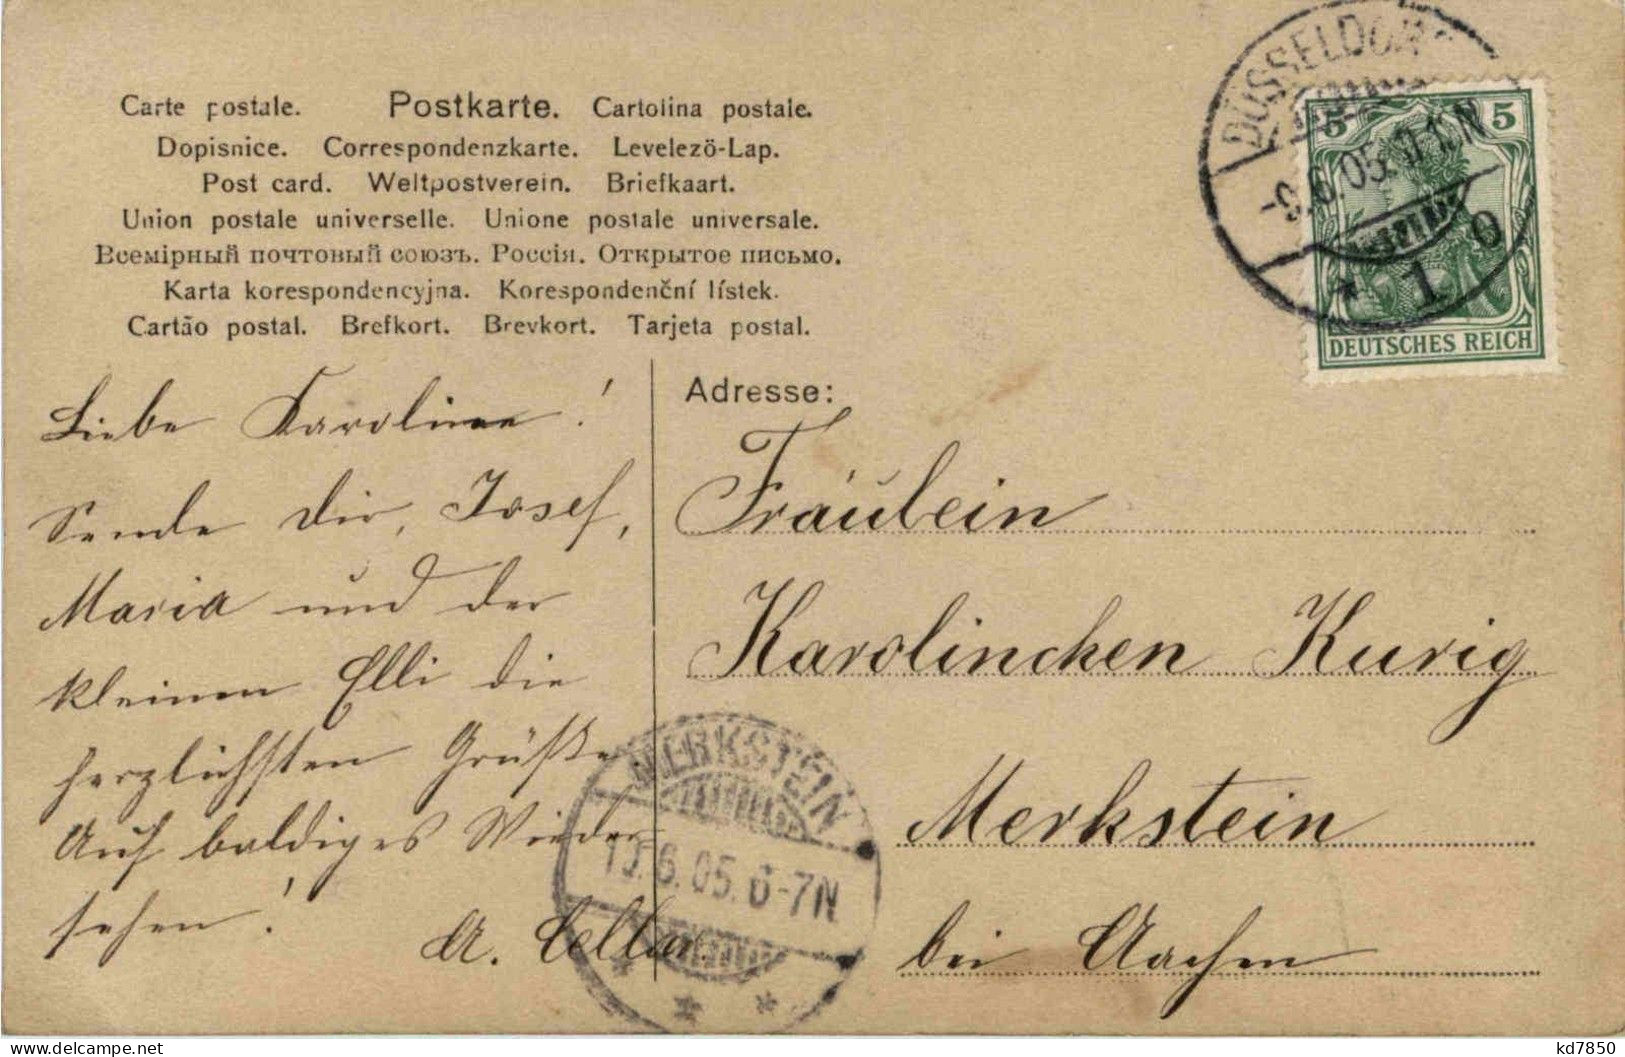 Carte postale. Postkarte. Cartolina postale.
Dopisnice. Correspondenzkarte. Levelező-Lap.
Post card. Weltpostverein. Briefkaart.
Union postale universelle. Unione postale universale.
Всемірный почтовый союзъ. Россія. Открытое письмо.
Karta korespondencyjna. Korespondenční lístek.
Cartão postal. Brefkort. Brevkort. Tarjeta postal.
DÜSSELDORF
-9.6.05.
1
5 5
DEUTSCHES REICH
Liebe Karoline!
Sende dir, Josef,
Maria und der
kleinen Elli die
herzlichsten Grüße.
Auf baldiges Wieder-
sehen!
Adresse:
Fräulein
Karolinchen Kurig
Merkstein
bei Aachen
MERKSTEIN
6.05. 6-7N
delcampe.net
kd7850